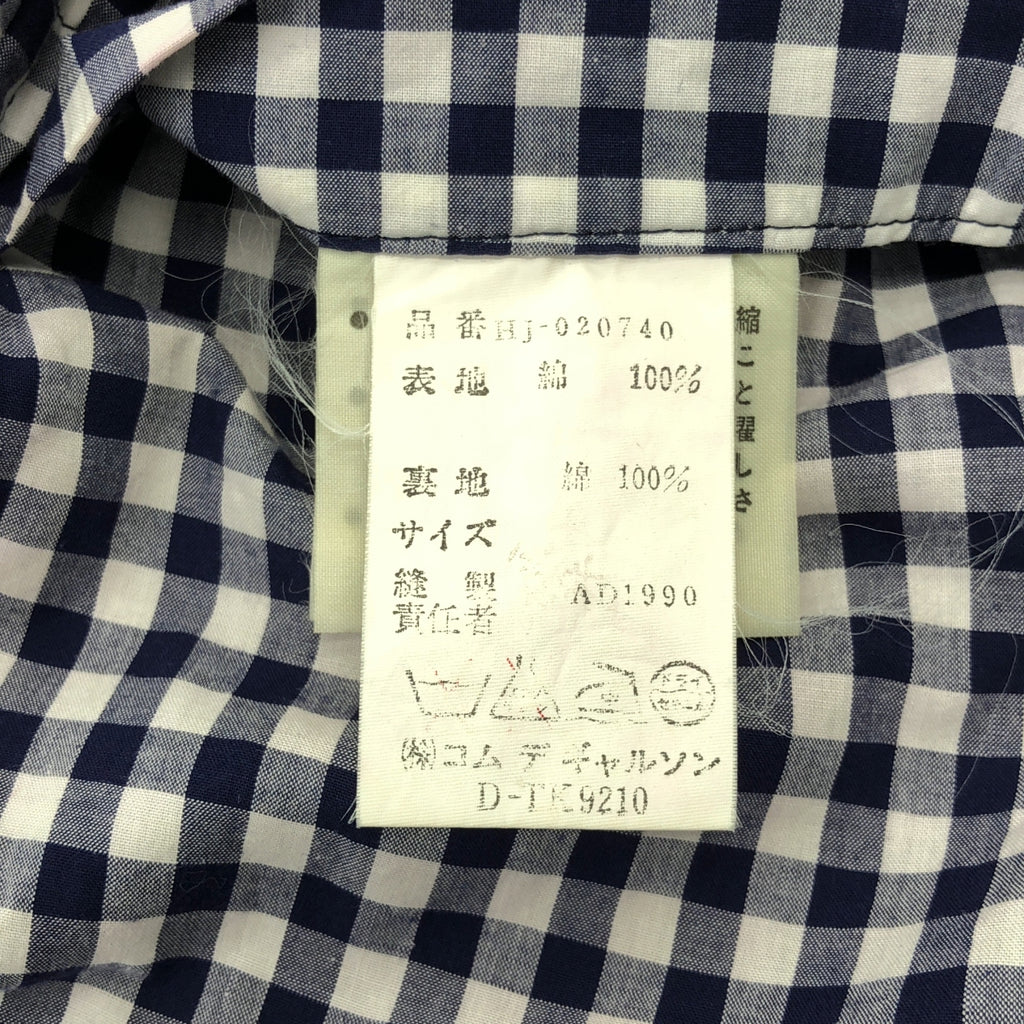 品番HJ-020740
表地 綿 100%
裏地 綿 100%
サイズ
縫製 AD1990
責任者
㈱コムデギャルソン
D-TK9210
縮こと濯しさ